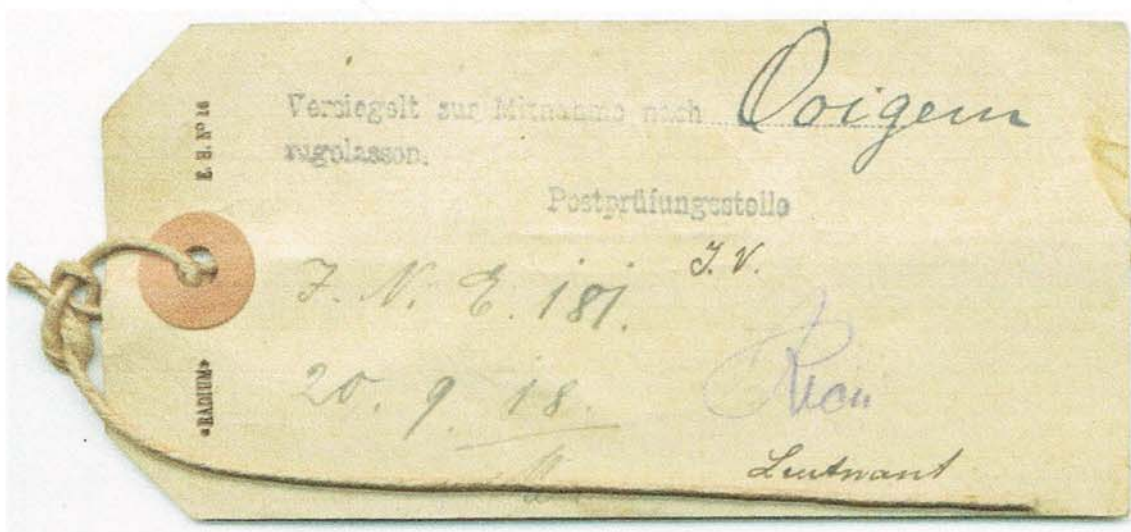 E. H. Nº 16
Versiegelt zur Mitnahme nach Ooigem
zugelassen.
Postprüfungsstelle
J. V.
J. N. E. 181.
20. 9. 18.
Leutnant
«RADIUM»